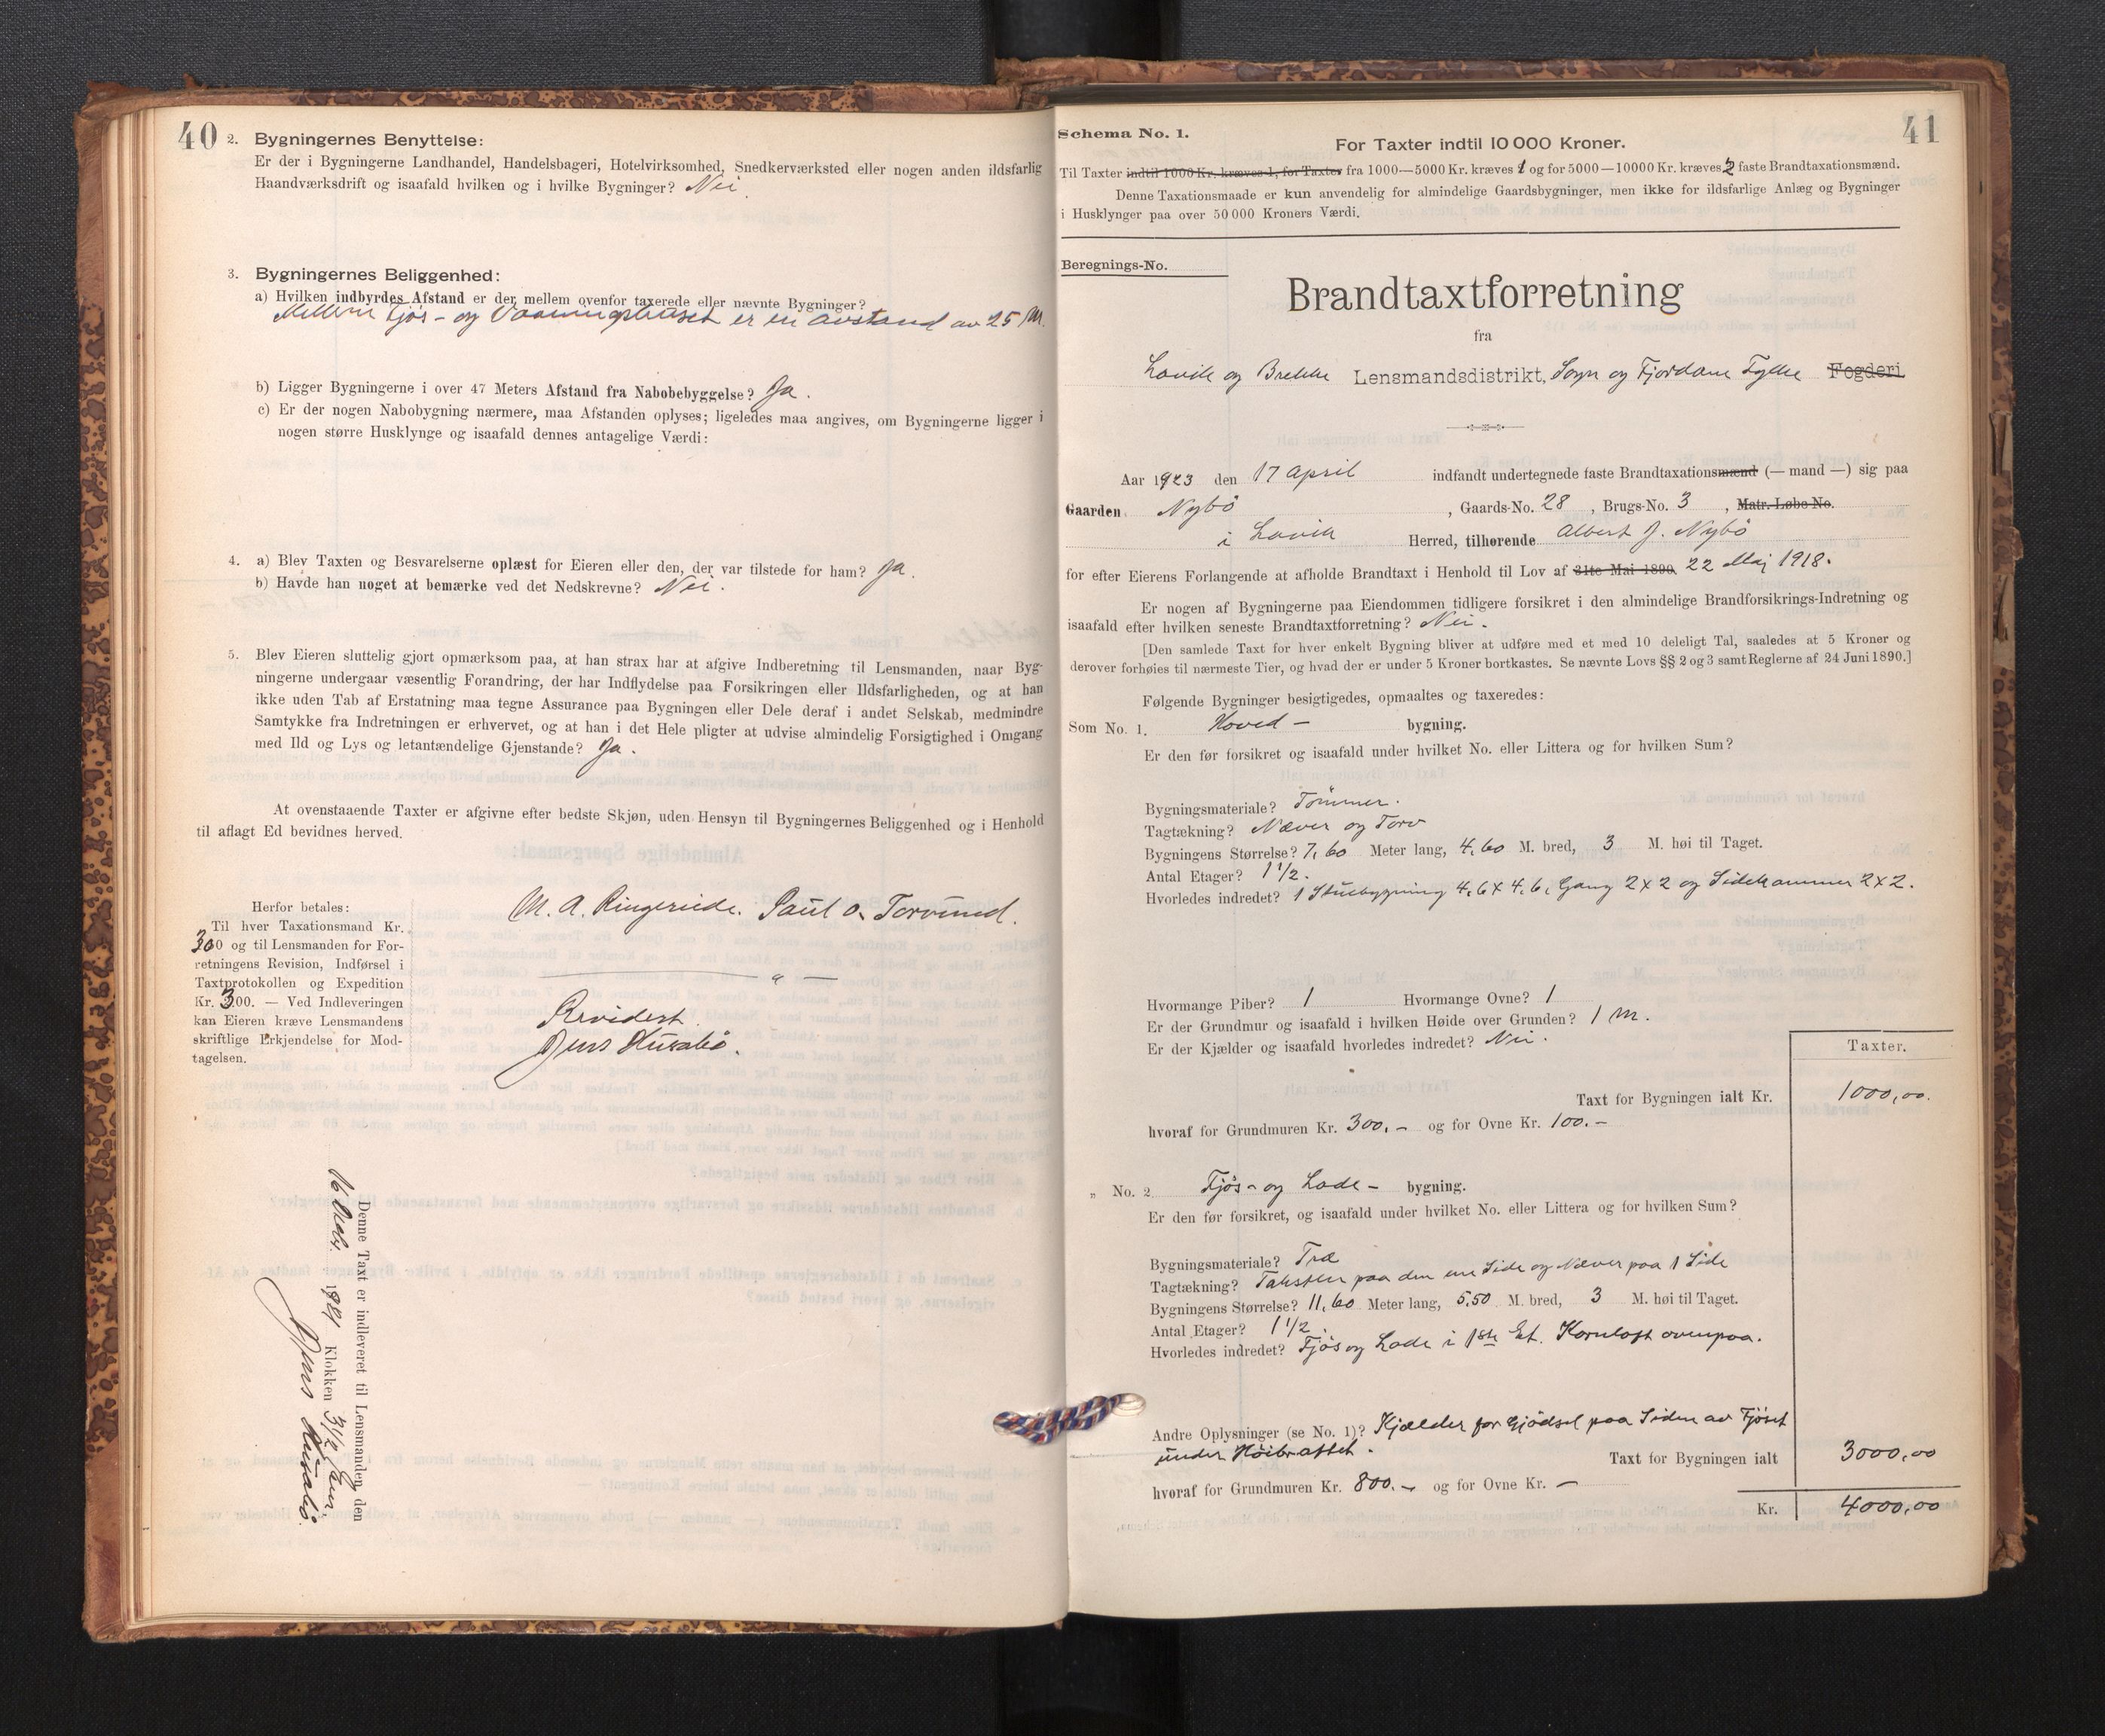 40
2. Bygningernes Benyttelse:
Er der i Bygningerne Landhandel, Handelsbageri, Hotelvirksomhed, Snedkerværksted eller nogen anden ildsfarlig
Haandværksdrift og isaafald hvilken og i hvilke Bygninger? Nei.
3. Bygningernes Beliggenhed:
a) Hvilken indbyrdes Afstand er der mellem ovenfor taxerede eller nævnte Bygninger?
Mellem Fjös- og Vaaningshuset er en avstand av 25 M.
b) Ligger Bygningerne i over 47 Meters Afstand fra Nabobebyggelse? Ja.
c) Er der nogen Nabobygning nærmere, maa Afstanden oplyses; ligeledes maa angives, om Bygningerne ligger i
nogen større Husklynge og isaafald dennes antagelige Værdi:
4. a) Blev Taxten og Besvarelserne oplæst for Eieren eller den, der var tilstede for ham? Ja.
b) Havde han noget at bemærke ved det Nedskrevne? Nei.
5. Blev Eieren sluttelig gjort opmærksom paa, at han strax har at afgive Indberetning til Lensmanden, naar Byg-
ningerne undergaar væsentlig Forandring, der har Indflydelse paa Forsikringen eller Ildsfarligheden, og at han
ikke uden Tab af Erstatning maa tegne Assurance paa Bygningen eller Dele deraf i andet Selskab, medmindre
Samtykke fra Indretningen er erhvervet, og at han i det Hele pligter at udvise almindelig Forsigtighed i Omgang
med Ild og Lys og letantændelige Gjenstande? Ja.
At ovenstaaende Taxter er afgivne efter bedste Skjøn, uden Hensyn til Bygningernes Beliggenhed og i Henhold
til aflagt Ed bevidnes herved.
M. A. Ringereide. Paul O. Torvund.
Herfor betales:
Til hver Taxationsmand Kr.
300 og til Lensmanden for For-
retningens Revision, Indførsel i
Taxtprotokollen og Expedition
Kr. 300. — Ved Indleveringen
kan Eieren kræve Lensmandens
skriftlige Erkjendelse for Mod-
tagelsen.
Revidert.
Jens Husabö.
Denne Taxt er indleveret til Lensmanden den
16 Decbr. 1921 Klokken 3 1/2 Em
Jens Husabö.
41
Schema No. 1.
For Taxter indtil 10 000 Kroner.
Til Taxter indtil 1000 Kr. kræves 1, for Taxter fra 1000—5000 Kr. kræves 1 og for 5000—10000 Kr. kræves 2 faste Brandtaxationsmænd.
Denne Taxationsmaade er kun anvendelig for almindelige Gaardsbygninger, men ikke for ildsfarlige Anlæg og Bygninger
i Husklynger paa over 50 000 Kroners Værdi.
Beregnings-No.
Brandtaxtforretning
fra
Lavik og Brekke Lensmandsdistrikt, Sogn og Fjordane Fylke Fogderi
Aar 1923 den 17 April indfandt undertegnede faste Brandtaxationsmænd (— mand —) sig paa
Gaarden Nybö, Gaards-No. 28, Brugs-No. 3, Matr.-Løbe-No.
i Lavik Herred, tilhørende Albert J. Nybö
for efter Eierens Forlangende at afholde Brandtaxt i Henhold til Lov af 31te Mai 1890. 22 Maj 1918.
Er nogen af Bygningerne paa Eiendommen tidligere forsikret i den almindelige Brandforsikrings-Indretning og
isaafald efter hvilken seneste Brandtaxtforretning? Nei.
[Den samlede Taxt for hver enkelt Bygning bliver at udføre med et med 10 deleligt Tal, saaledes at 5 Kroner og
derover forhøies til nærmeste Tier, og hvad der er under 5 Kroner bortkastes. Se nævnte Lovs §§ 2 og 3 samt Reglerne af 24 Juni 1890.]
Følgende Bygninger besigtigedes, opmaaltes og taxeredes:
Som No. 1. Hoved- bygning.
Er den før forsikret og isaafald under hvilket No. eller Littera og for hvilken Sum?
Bygningsmateriale? Tömmer.
Tagtækning? Næver og Torv
Bygningens Størrelse? 7,60 Meter lang, 4,60 M. bred, 3 M. høi til Taget.
Antal Etager? 1 1/2.
Hvorledes indredet? 1 Stuebygning 4,6 x 4,6, Gang 2x2 og Sidekammer 2x2.
Hvormange Piber? 1 Hvormange Ovne? 1
Er der Grundmur og isaafald i hvilken Høide over Grunden? 1 m.
Er der Kjælder og isaafald hvorledes indredet? Nei.
Taxter.
Taxt for Bygningen ialt Kr. 1000,00.
hvoraf for Grundmuren Kr. 300.- og for Ovne Kr. 100.-
„ No. 2 Fjös- og Lade- bygning.
Er den før forsikret, og isaafald under hvilket No. eller Littera og for hvilken Sum?
Bygningsmateriale? Træ
Tagtækning? Taksten paa den ene Side og Næver paa 1 Side
Bygningens Størrelse? 11,60 Meter lang, 5,50 M. bred, 3 M. høi til Taget.
Antal Etager? 1 1/2.
Hvorledes indredet? Fjös og Lade i 1ste Et. Kornloft ovenpaa.
Andre Oplysninger (se No. 1)? Kjælder for Gjödsel paa Siden av Fjöset
under
Taxt for Bygningen ialt 3000,00
hvoraf for Grundmuren Kr. 800.- og for Ovne Kr. -
Kr. 4000,00